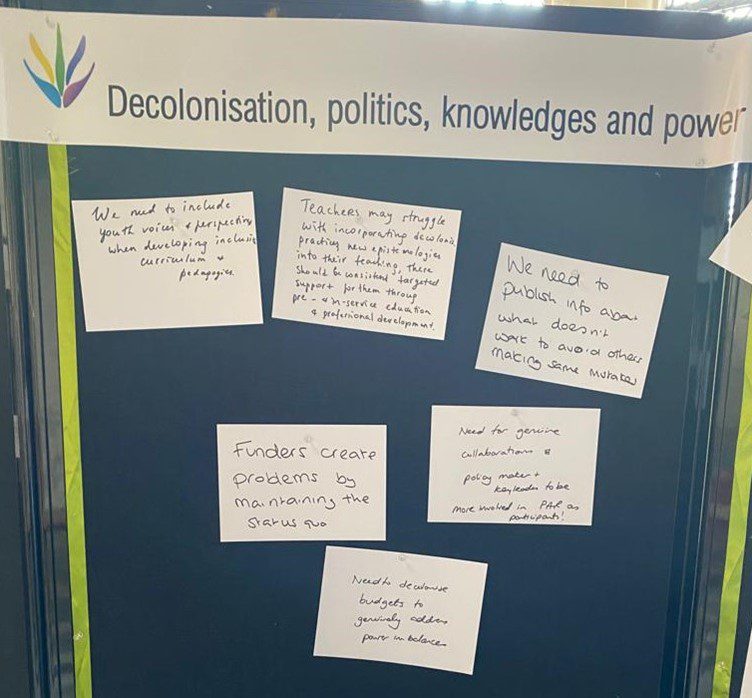 Decolonisation, politics, knowledges and power
We need to include
youth voices & perspectives
when developing inclusive
curriculum &
pedagogies
Teachers may struggle
with incorporating
practing new epistemologies
into their teaching, there
should be consistent targeted
support for them throup
pre- & in-service education
& professional development.
We need to
publish info about
what doesn't
work to avoid others
making same mistakes
Funders create
problems by
maintaining the
status quo
Need for genuine
collaborations &
policy maker +
key leader to be
more involved in PAR as
participants!
Need to decolonise
budgets to
genuinely address
power imbalances